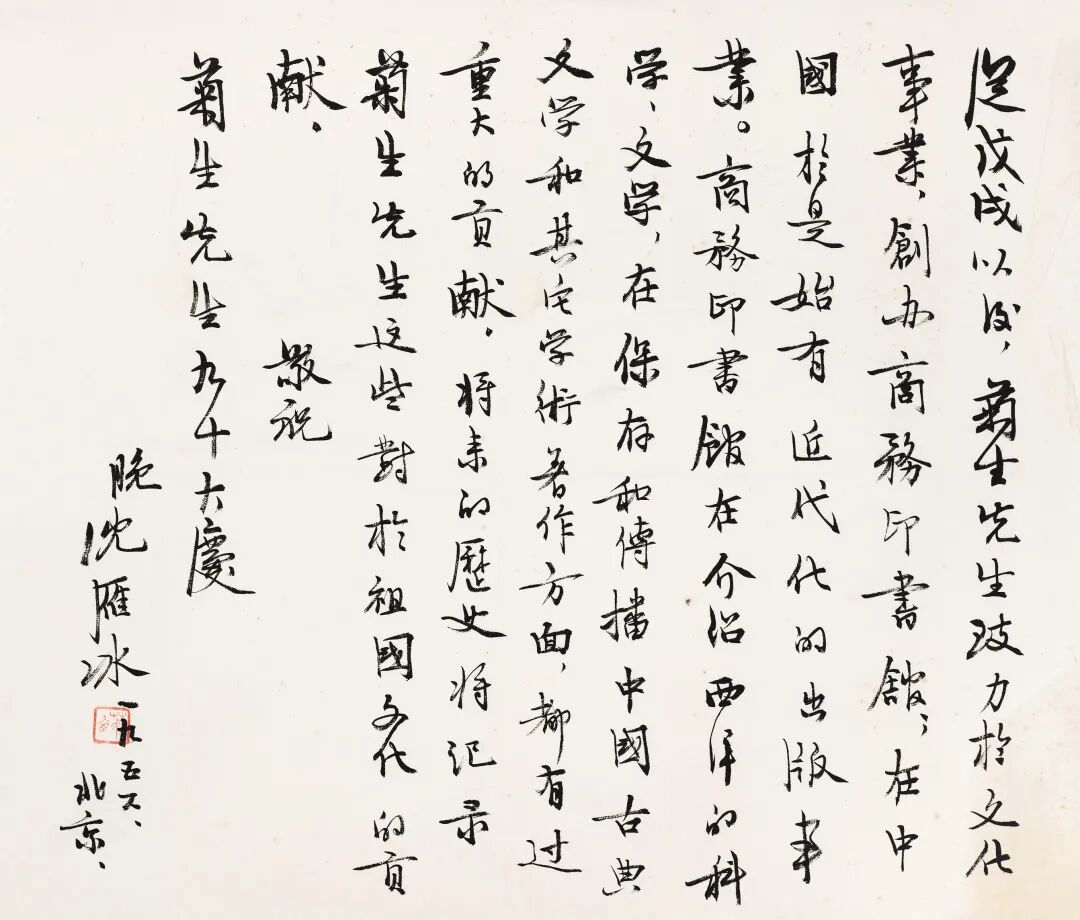 從戊戌以後，菊生先生致力於文化
事業，創办商務印書館，在中
國於是始有近代化的出版事
業。商務印書館在介绍西洋的科
学、文学，在保存和傳播中國古典
文学和其它学術着作方面，都有过
重大的贡献。将来的歷史将记录
菊生先生这些對於祖國文化的贡
献。敬祝
菊生先生九十大慶
晚沈雁冰
一九五六、北京、